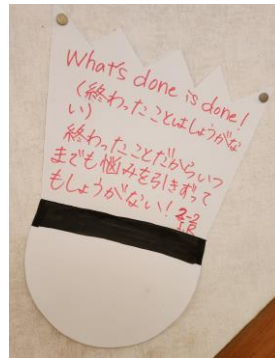 What's done is done!
(終わったことはしょうがな
い)
終わったことだからいつ
までも悩みを引きずって
もしょうがない！
2-2
I.R